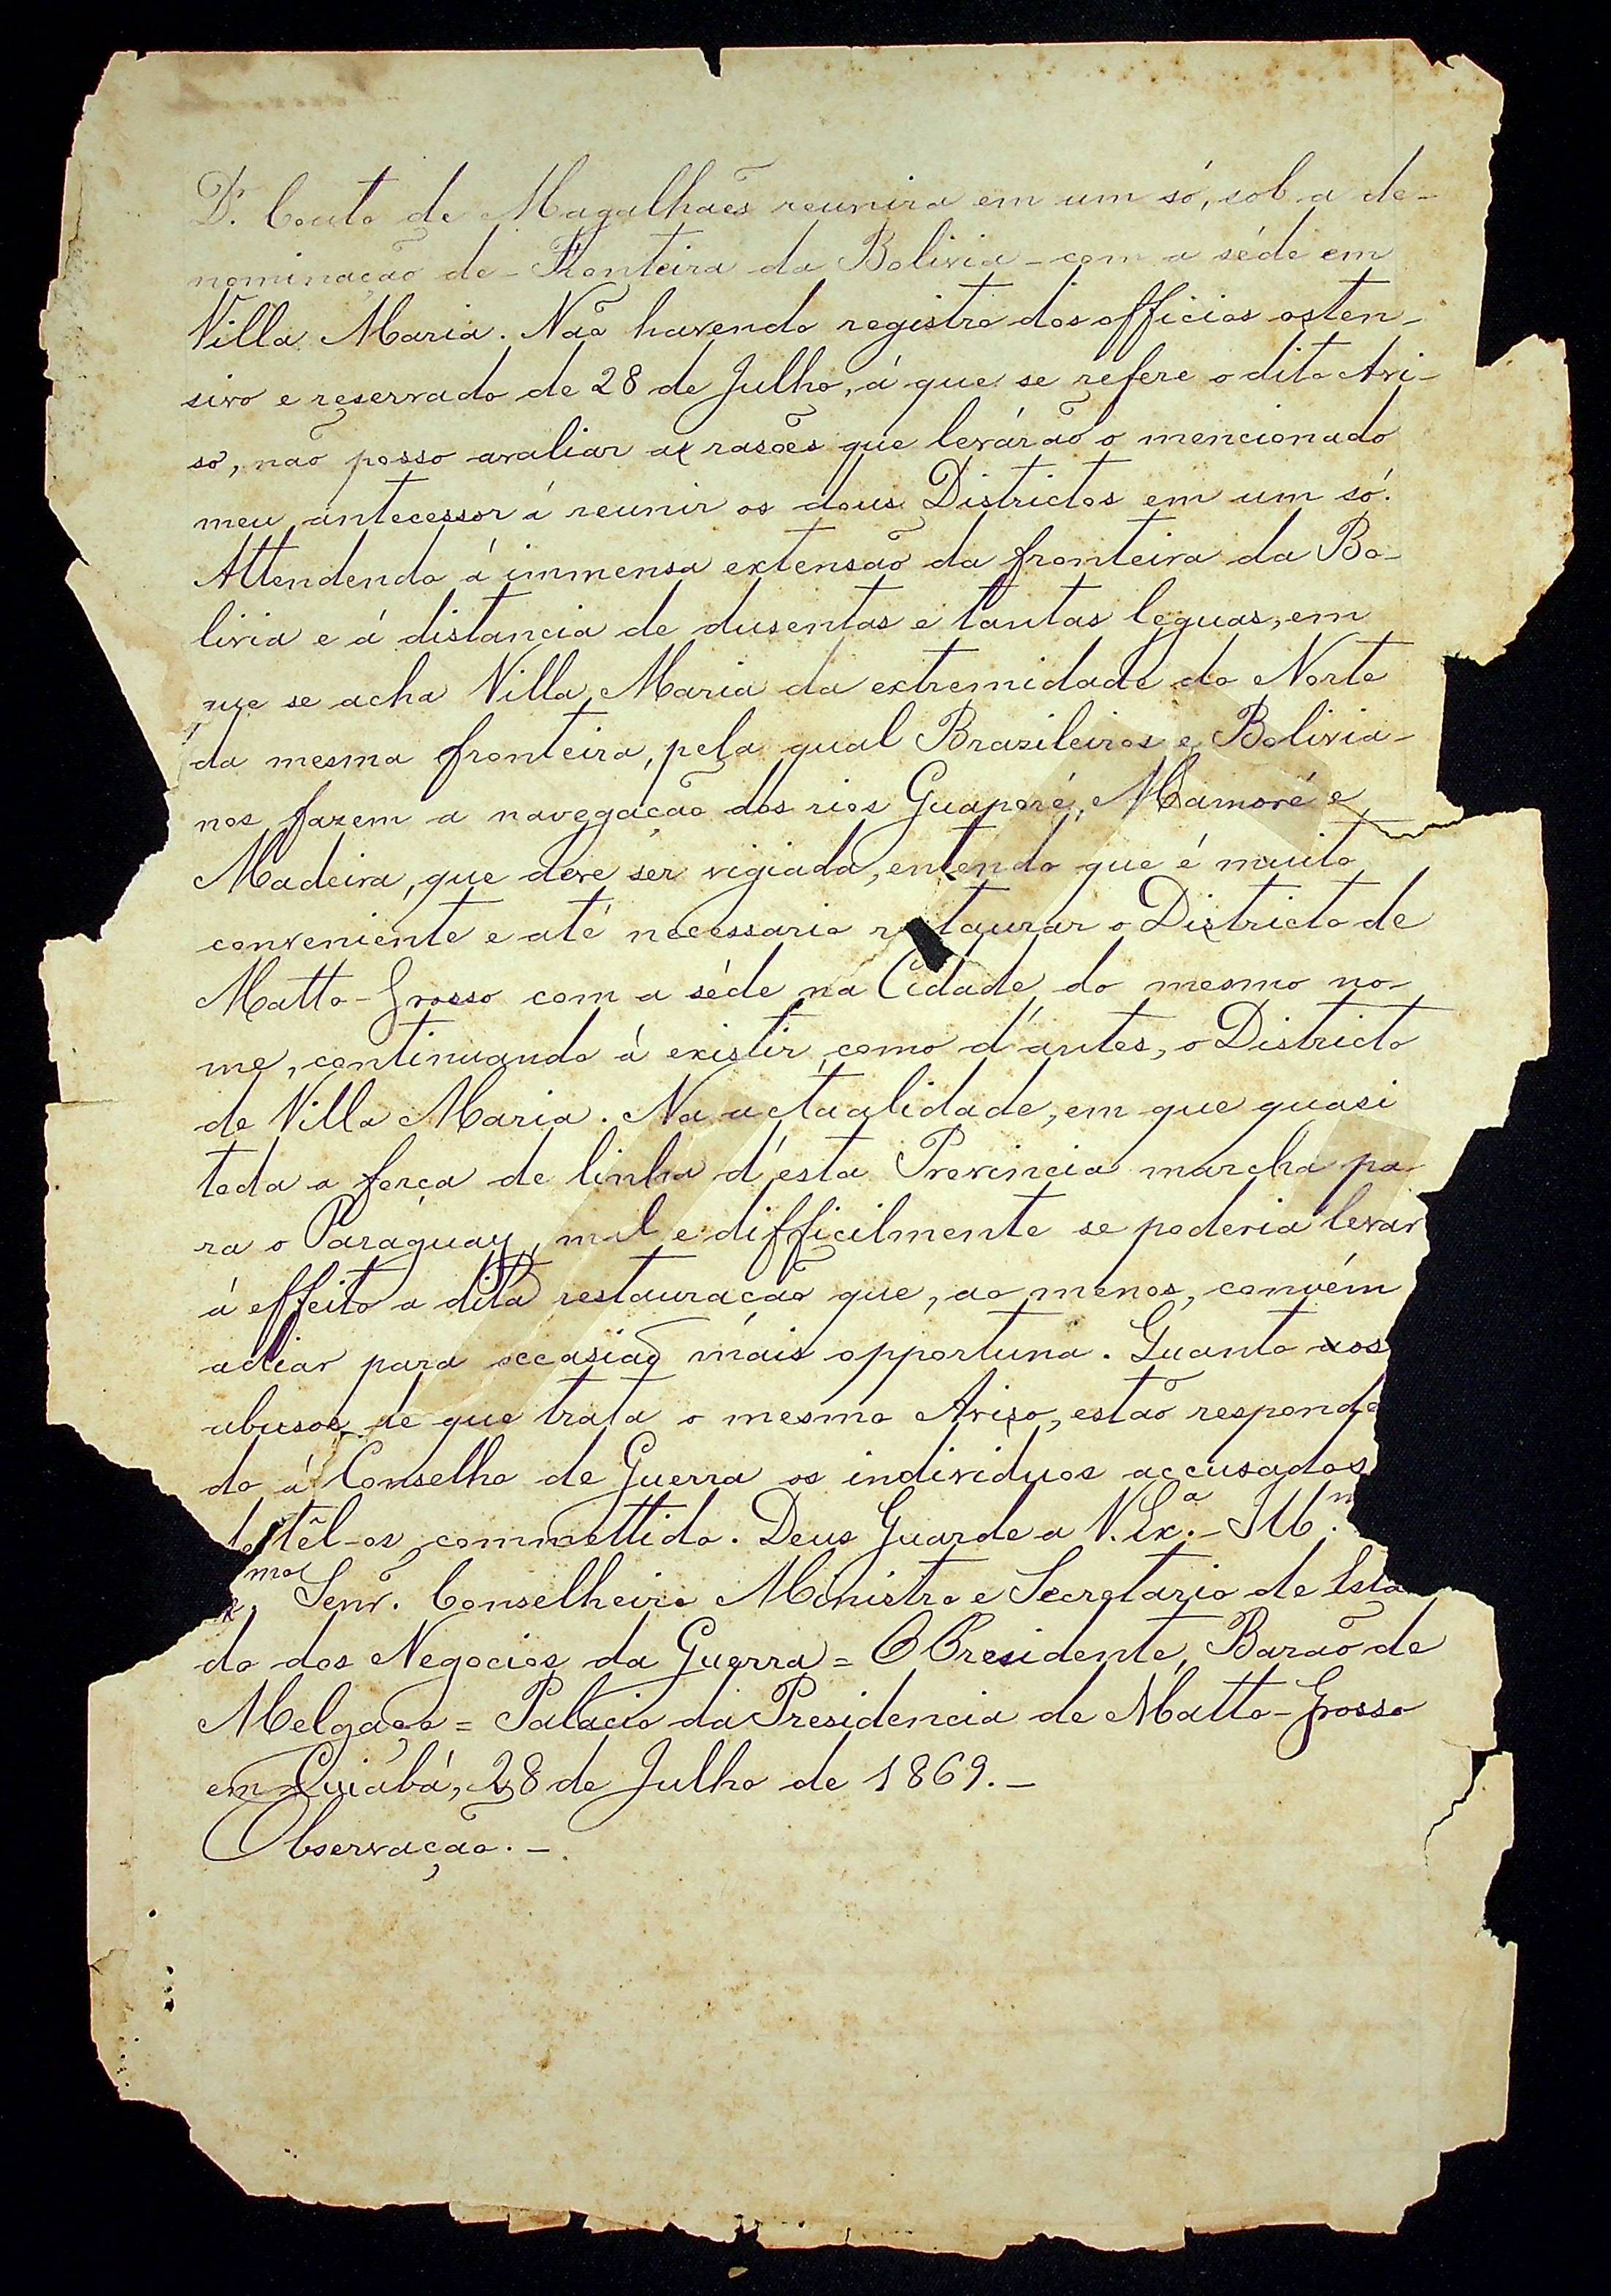 Dr. Couto de Magalhães reunira em um só, sob a de-
nominação de - Fronteira da Bolivia - com a séde em
Villa Maria. Não havendo registro dos officios osten-
sivo e reservado de 28 de Julho, á que se refere o dito Avi-
so, não posso avaliar as rasões que levárão o mencionado
meu antecessor á reunir os dous Districtos em um só.
Attendendo á immensa extensão da fronteira da Bo-
livia e á distancia de dusentas e tantas leguas, em
que se acha Villa Maria da extremidade do Norte
da mesma fronteira, pela qual Brazileiros e Bolivia-
nos fazem a navegação dos rios Guaporé, Mamoré e
Madeira, que deve ser vigiada, entendo que é muito
conveniente e até necessario r taurar o Districto de
Matto-Grosso com a séde na Cidade do mesmo no-
me, continuando á existir, como d'antes, o Districto
de Villa Maria. Na actualidade, em que quasi
toda a força de linha d'esta Provincia marcha pa-
ra o Paraguay, mal e difficilmente se poderia levar
á effeito a dita restauração que, ao menos, convém
adiar para occasião mais opportuna. Quanto aos
abusos de que trata o mesmo Aviso, estão responde
do á Conselho de Guerra os individuos accusados
de têl-os commettido. Deus Guarde a V. Exª. - Illm.
mo Senr. Conselheiro Ministro e Secretario de Esta
do dos Negocios da Guerra = O Presidente, Barão de
Melgaço = Palacio da Presidencia de Matto-Grosso
em Cuiabá, 28 de Julho de 1869. -
Observação. -